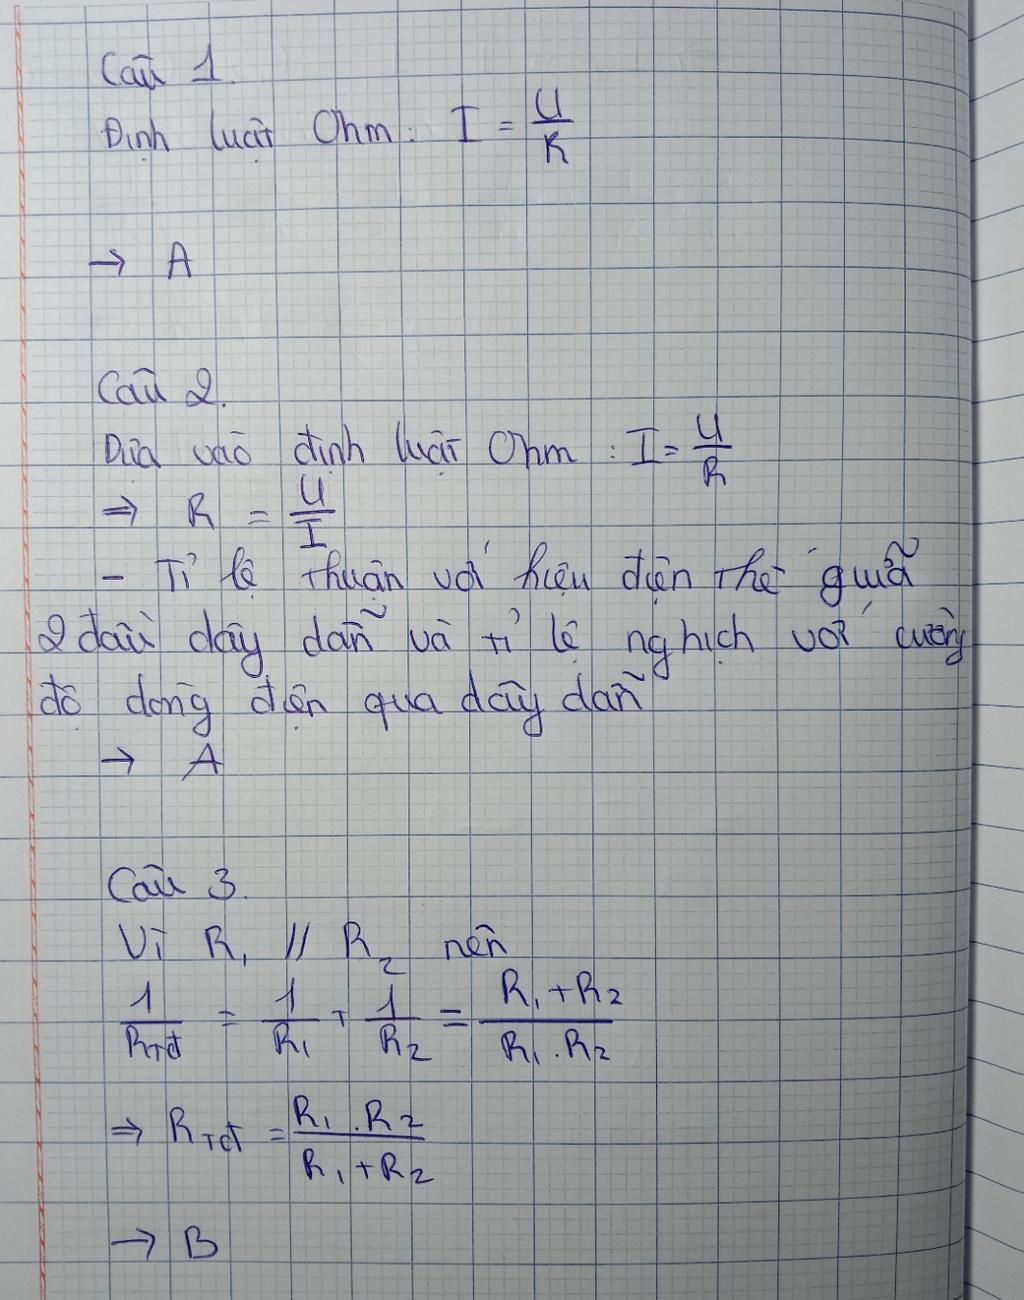 Câu 1.
Định luật Ohm: I = U/R
→ A
Câu 2.
Dựa vào định luật Ohm: I = U/R
⇒ R = U/I
- Tỉ lệ thuận với hiệu điện thế giữa
2 đầu dây dẫn và tỉ lệ nghịch với cường
độ dòng điện qua dây dẫn
→ A
Câu 3.
Vì R₁ // R₂ nên
1/R_TĐ = 1/R₁ + 1/R₂ = (R₁ + R₂)/(R₁ . R₂)
⇒ R_TĐ = (R₁ . R₂)/(R₁ + R₂)
→ B